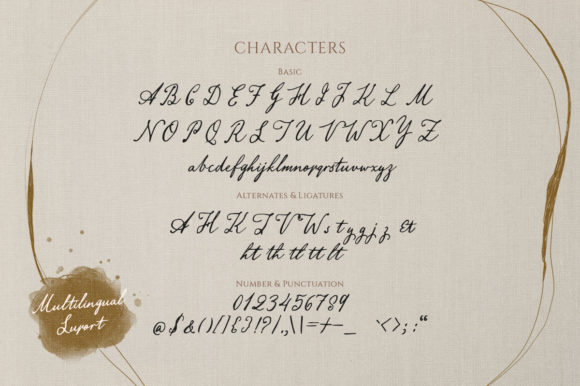 CHARACTERS
Basic
A B C D E F G H I J K L M
N O P Q R S T U V W X Y Z
abcdefghijklmnopqrstuvwxyz
Alternates & Ligatures
A H K T V W s t y g j z &t
ht th tl tt lt
Number & Punctuation
0123456789
@$&()[]{}!?/|.,\|=+-_ `<>;:“
Multilingual
Suport